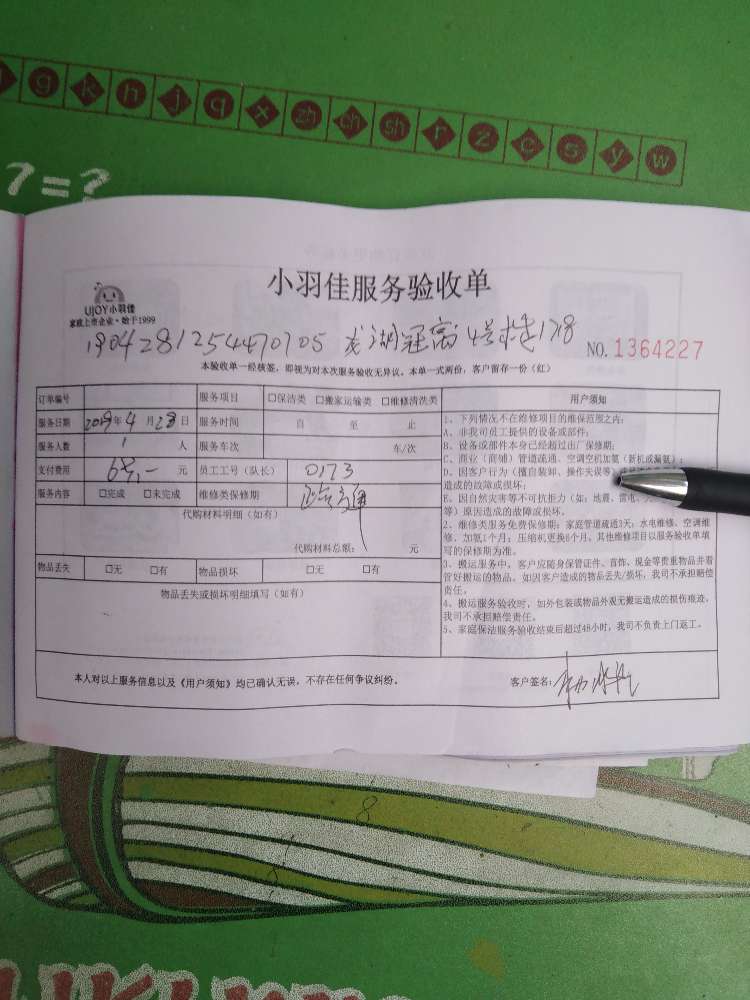 g k h j q x zh ch sh r z c s y w
?=?
小羽佳服务验收单
UJOY小羽佳
家庭上市企业·始于1999
1904281254470705
NO. 1364227
本验收单一经核签，即视为对本次服务验收无异议。本单一式两份，客户留存一份（红）
订单编号 服务项目 □保洁类 □搬家运输类 □维修清洗类 用户须知
服务日期 2019年4月28日 服务时间 自 至 止
服务人数 1 人 服务车次 车/次
支付费用 元 员工工号（队长） 0173
服务内容 □完成 □未完成 维修类保修期
代购材料明细（如有）
代购材料总额： 元
物品丢失 □无 □有 物品损坏 □无 □有
物品丢失或损坏明细填写（如有）
1、下列情况不在维修项目的维保范围之内：
A、非我司员工提供的设备或部件；
B、设备或部件本身已经超过出厂保修期；
C、商业（商铺）管道疏通、空调空机加氟（新机或漏氟）；
D、因客户行为（擅自装卸、操作失误等）
造成的故障或损坏；
E、因自然灾害等不可抗力（如：地震、雷电、
等）原因造成的故障或损坏。
2、维修类服务免费保修期：家庭管道疏通3天；水电维修、空调维
修、加氟1个月；压缩机更换6个月，其他维修项目以服务验收单填
写的保修期为准。
3、搬运服务中，客户应随身保管证件、首饰、现金等贵重物品并看
管好搬运的物品。如因客户造成的物品丢失/损坏，我司不承担赔偿
责任。
4、搬运服务验收时，如外包装或物品外观无搬运造成的损伤痕迹，
我司不承担赔偿责任。
5、家庭保洁服务验收结束后超过48小时，我司不负责上门返工。
本人对以上服务信息以及《用户须知》均已确认无误，不存在任何争议纠纷。
客户签名：
8